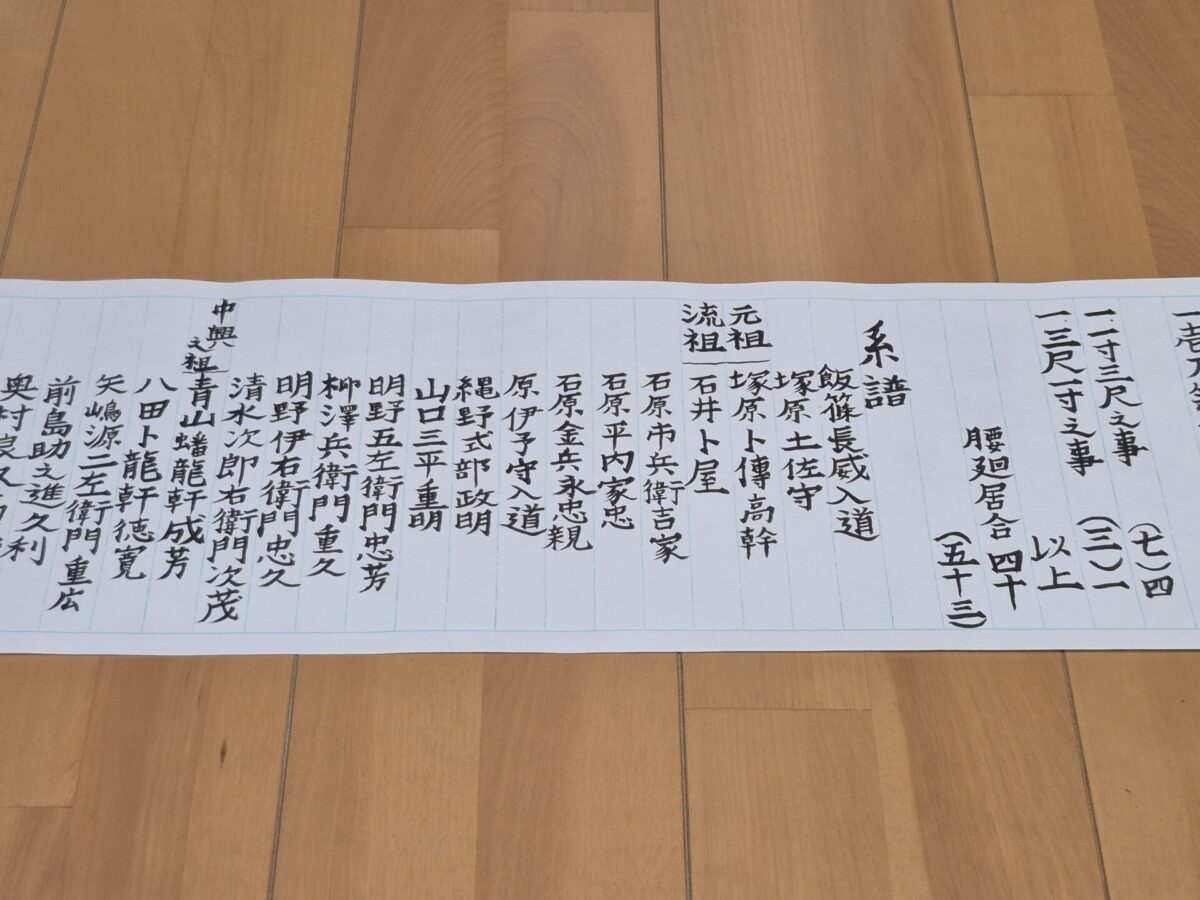 一 壱尺
(七)四
一 一寸三尺之事 (三)一
一 三尺一寸之事
以上
腰廻居合 四十
(五十三)
系譜
飯篠長威入道
塚原土佐守
元祖 塚原卜傳高幹
流祖 石井卜屋
石原市兵衛吉家
石原平内家忠
石原金兵永忠親
原伊予守入道
縄野式部政明
山口三平重明
明野五左衛門忠芳
柳澤兵衛門重久
明野伊右衛門忠久
清水次郎右衛門次茂
中興之祖 青山蟠龍軒成芳
八田卜龍軒徳寛
矢嶋源二左衛門重広
前島助之進久利
奥村良久